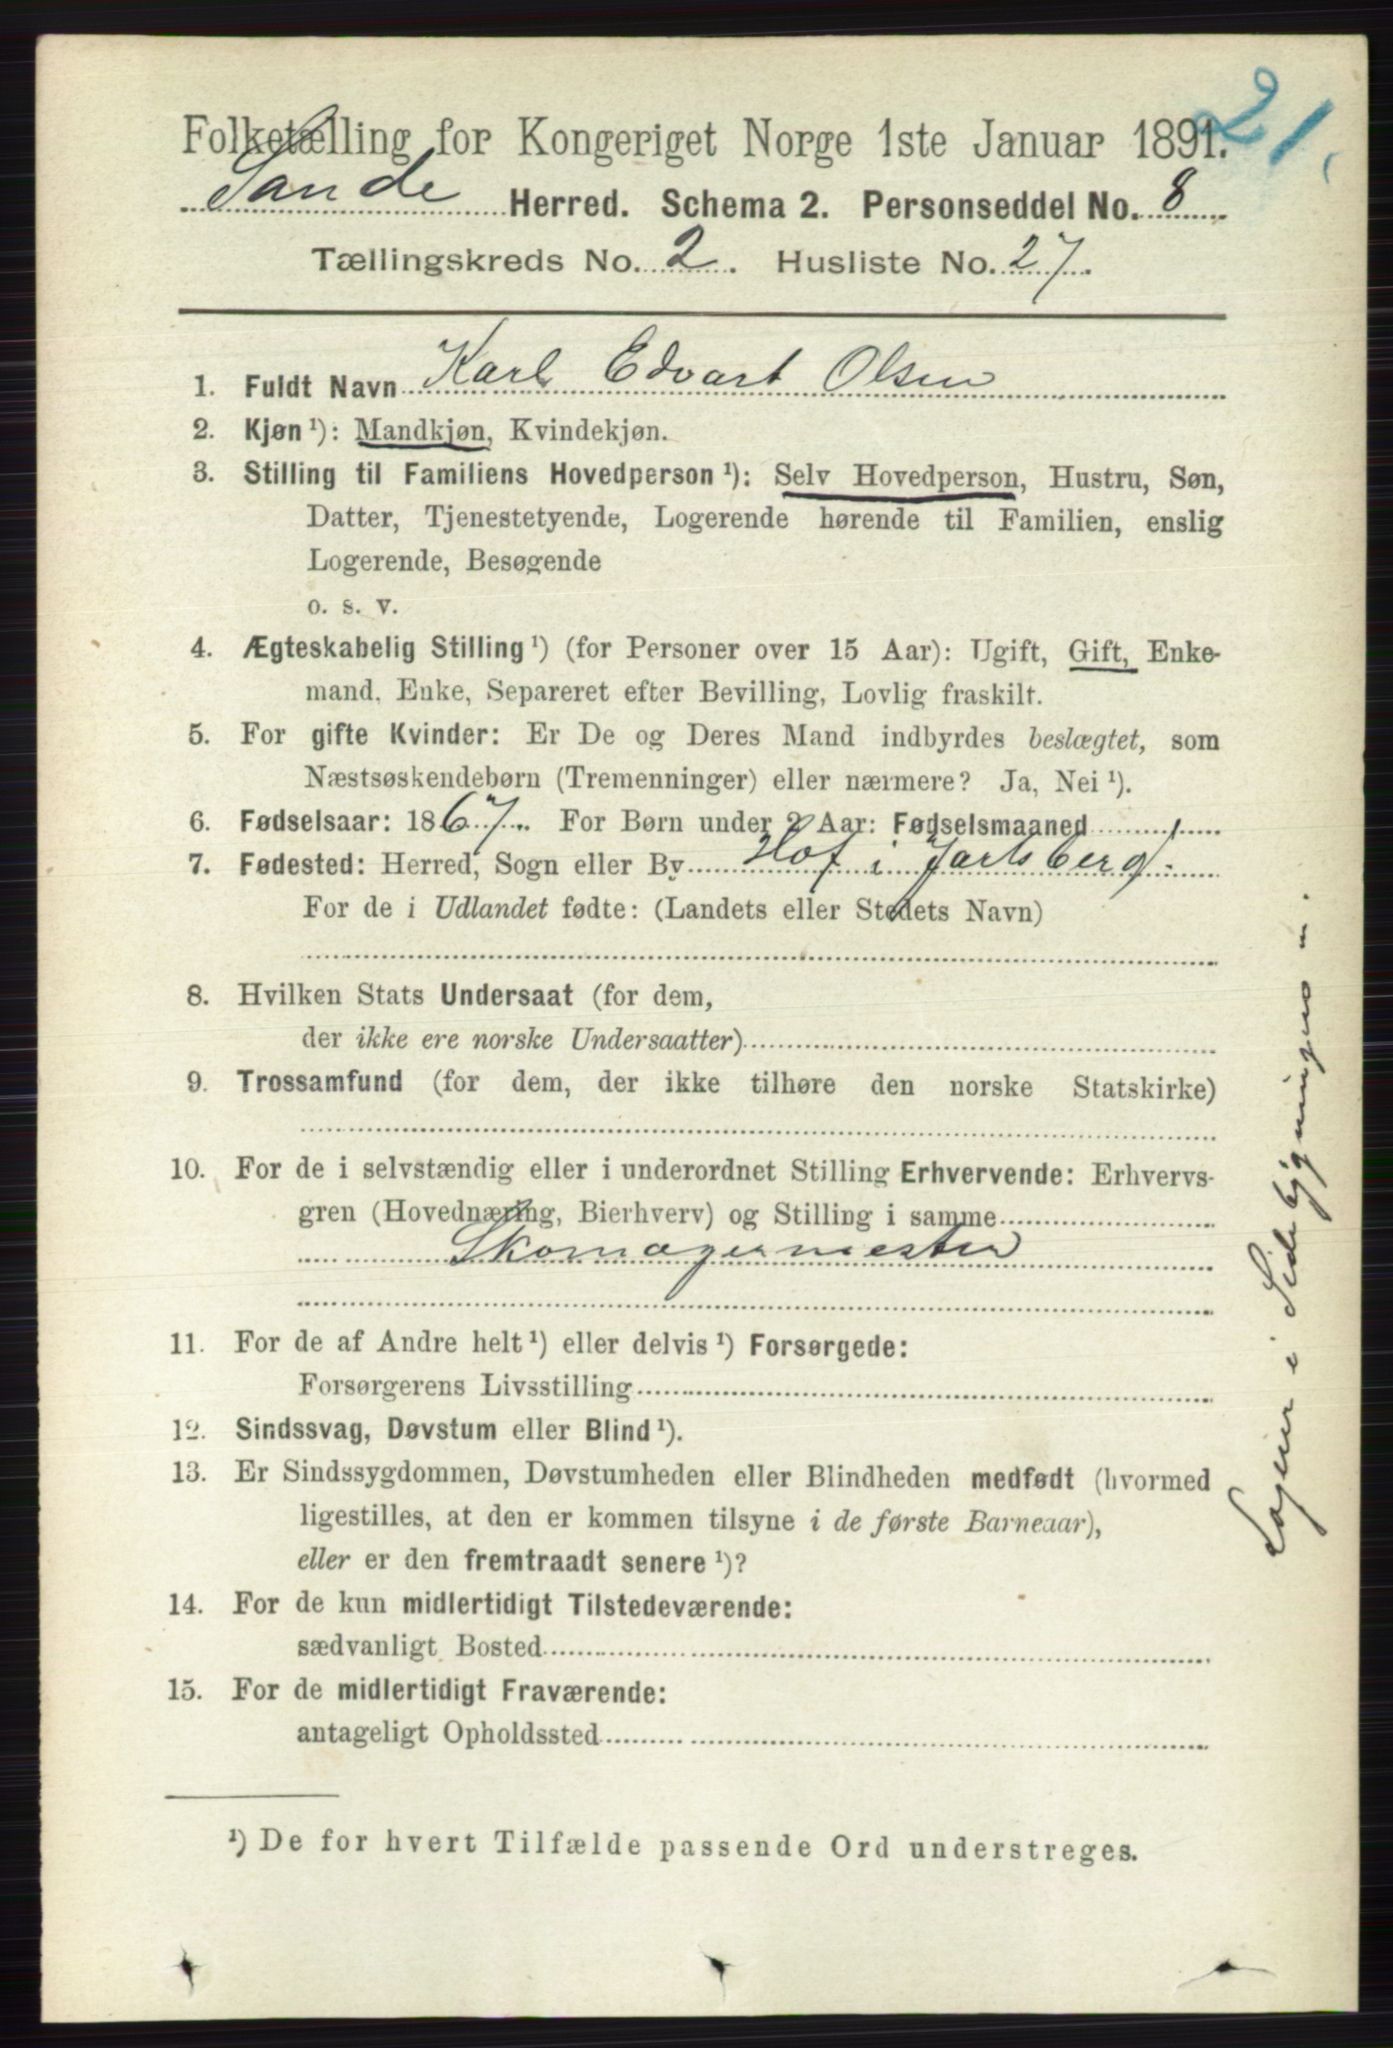 21.
Folketælling for Kongeriget Norge 1ste Januar 1891.
Sande Herred. Schema 2. Personseddel No. 8
Tællingskreds No. 2. Husliste No. 27.
1. Fuldt Navn Karl Edvart Olsen
2. Kjøn ¹): Mandkjøn, Kvindekjøn.
3. Stilling til Familiens Hovedperson ¹): Selv Hovedperson, Hustru, Søn,
Datter, Tjenestetyende, Logerende hørende til Familien, enslig
Logerende, Besøgende
o. s. v.
4. Ægteskabelig Stilling ¹) (for Personer over 15 Aar): Ugift, Gift, Enke-
mand, Enke, Separeret efter Bevilling, Lovlig fraskilt.
5. For gifte Kvinder: Er De og Deres Mand indbyrdes beslægtet, som
Næstsøskendebørn (Tremenninger) eller nærmere? Ja, Nei ¹).
6. Fødselsaar: 1867. For Børn under 2 Aar: Fødselsmaaned
7. Fødested: Herred, Sogn eller By Hof i Jarlsberg.
For de i Udlandet fødte: (Landets eller Stedets Navn)
8. Hvilken Stats Undersaat (for dem,
der ikke ere norske Undersaatter)
9. Trossamfund (for dem, der ikke tilhøre den norske Statskirke)
10. For de i selvstændig eller i underordnet Stilling Erhvervende: Erhvervs-
gren (Hovednæring, Bierhverv) og Stilling i samme
Skomagermester
11. For de af Andre helt ¹) eller delvis ¹) Forsørgede:
Forsørgerens Livsstilling
12. Sindssvag, Døvstum eller Blind ¹).
13. Er Sindssygdommen, Døvstumheden eller Blindheden medfødt (hvormed
ligestilles, at den er kommen tilsyne i de første Barneaar),
eller er den fremtraadt senere ¹)?
14. For de kun midlertidigt Tilstedeværende:
sædvanligt Bosted
15. For de midlertidigt Fraværende:
antageligt Opholdssted
¹) De for hvert Tilfælde passende Ord understreges.
Logerer i Sidebygningen.